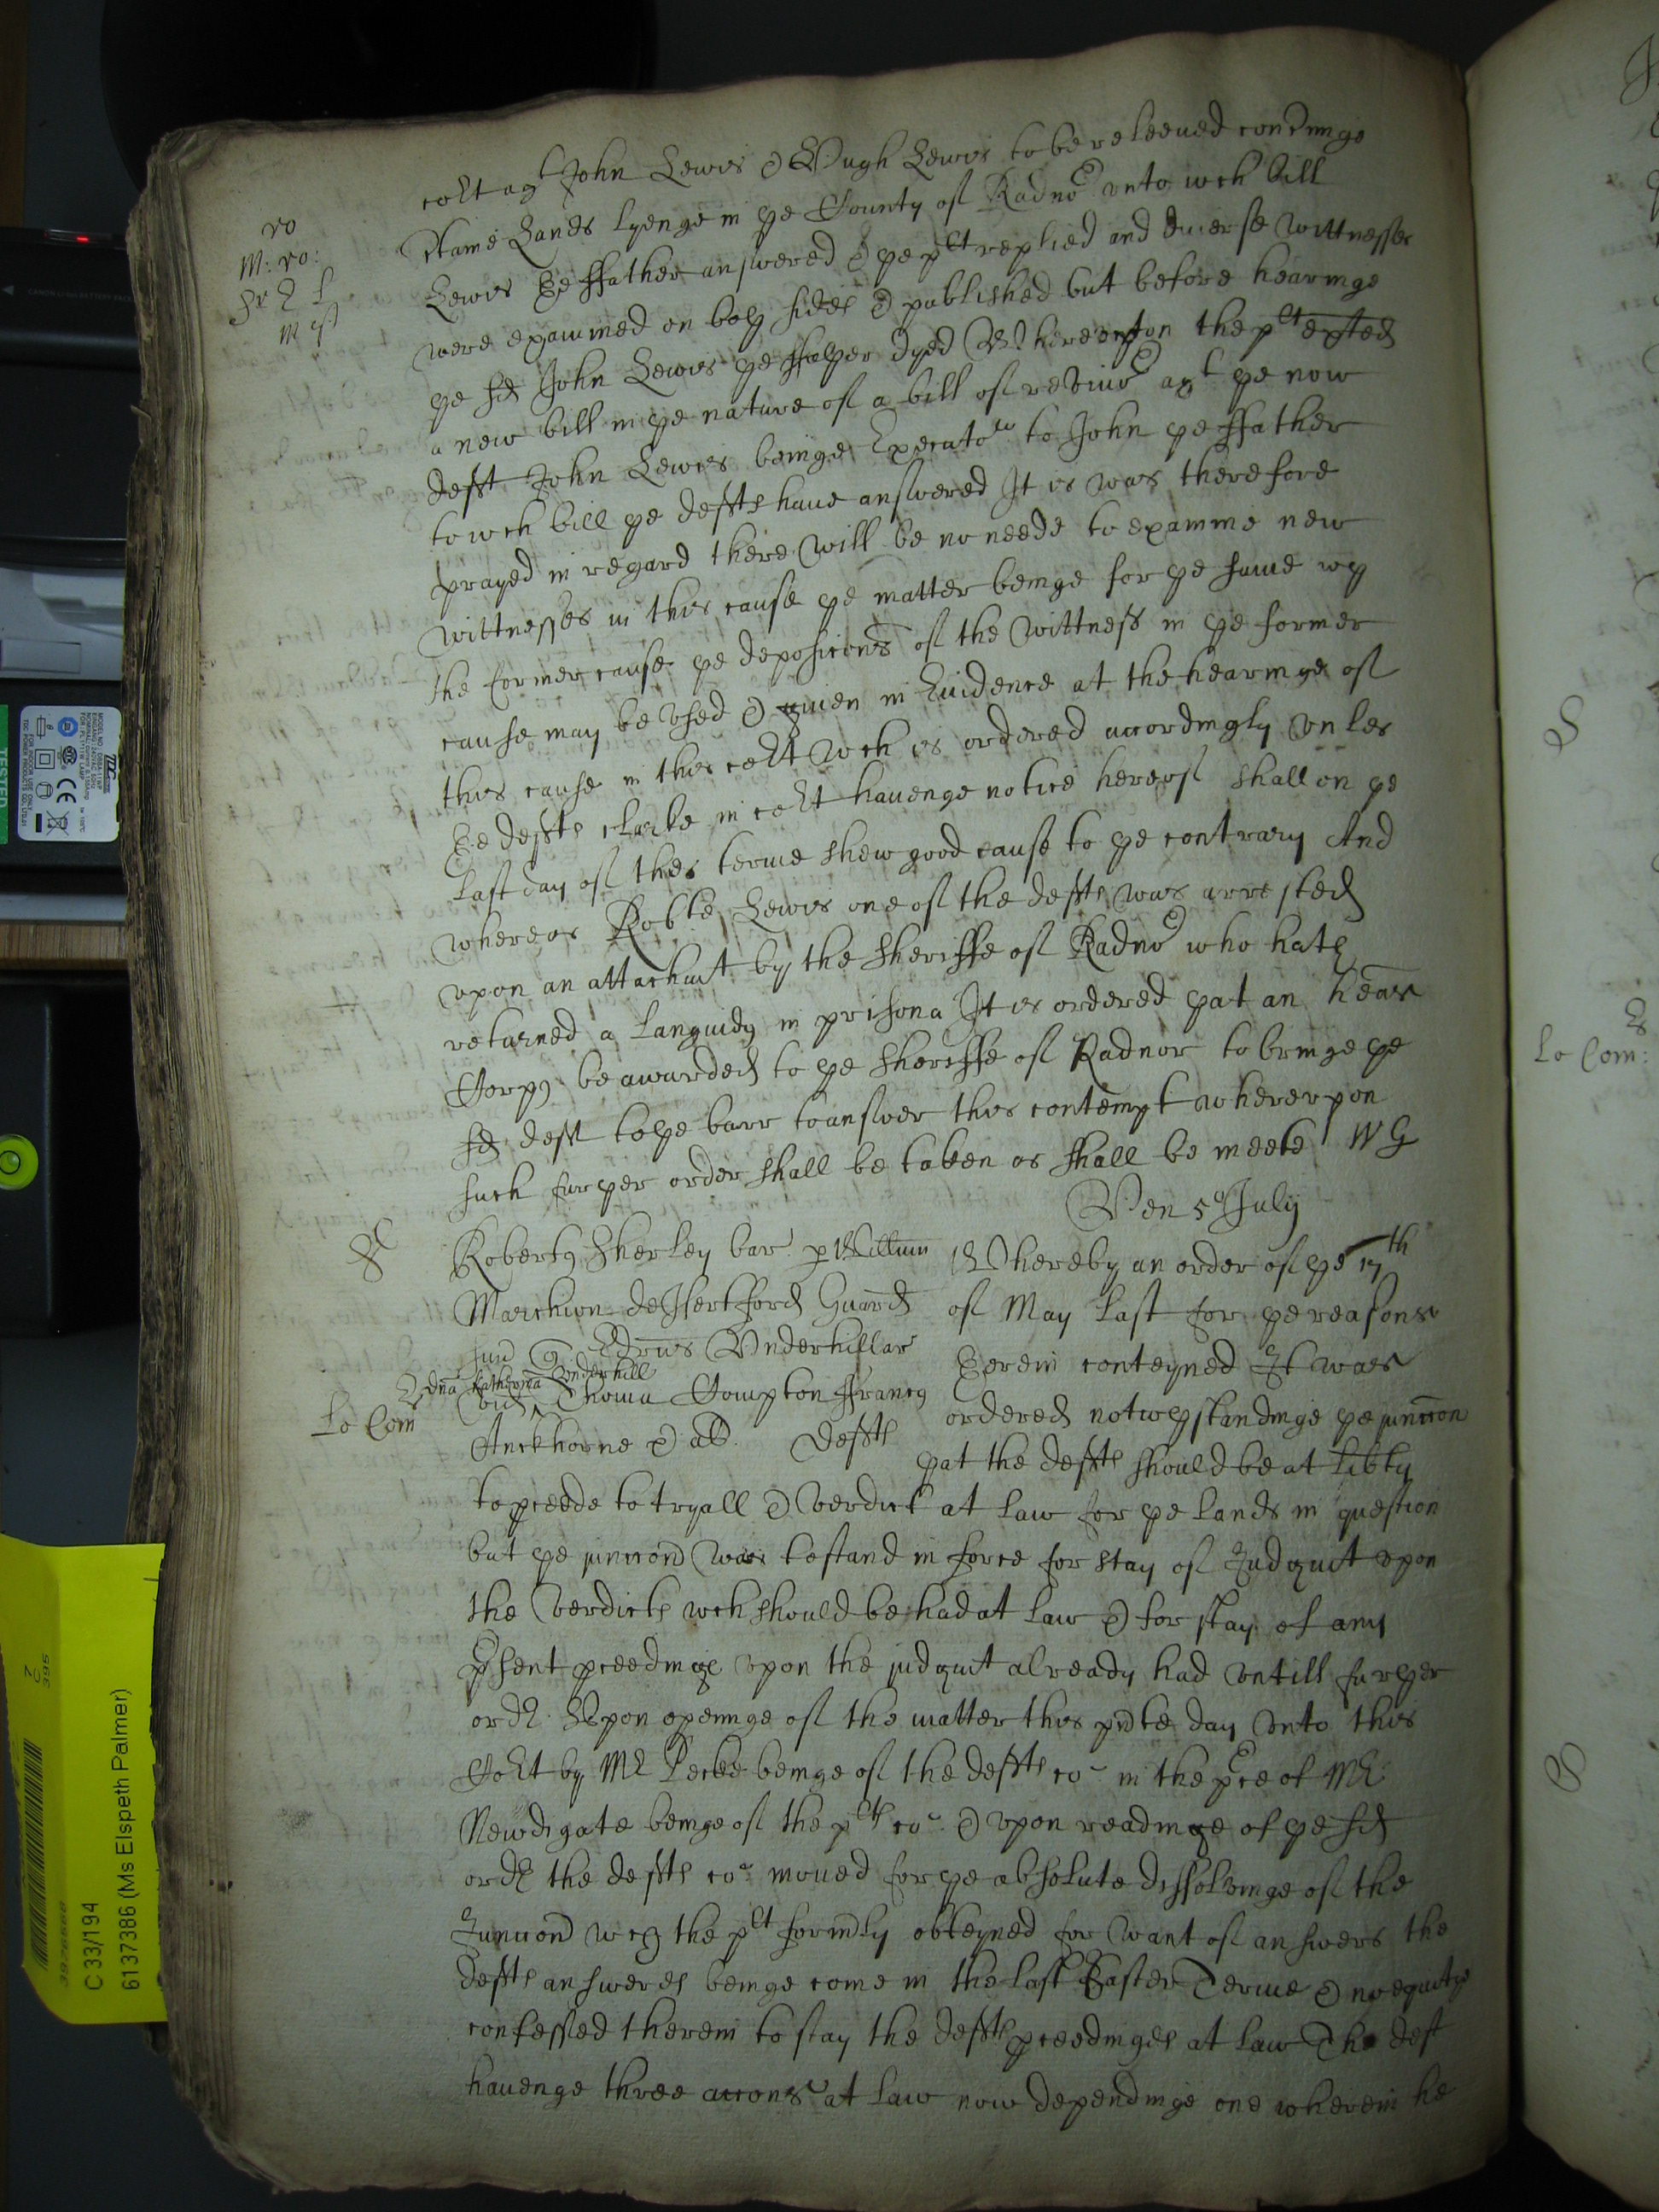 coʳt agᵗ John Lewis & Hugh Lewis to be releeued concʳninge
Lands lyenge in ye County of Radnoʳ vnto wch bill
Lewis ye ffather answered & ye pˡᵗ replied and diuerse wittnesses
were examined on both sides & published but before hearinge
ye sd John Lewis ye ffather dyed Wherevpon the pˡᵗ exted
a new bill in ye nature of a bill of reviuoʳ agᵗ ye now
defft John Lewis beinge Executoʳ to John ye ffather
to wch bill ye deffts haue answered It is was therefore
prayed in regard there will be no neede to examine new
wittnesses in this cause ye matter beinge for ye same wth
the former cause ye deposicons of the wittness in ye former
cause may be vsed & giuen in Euidence at the hearinge of
this cause in this coʳt wch is ordered accordingly vnles
ye deffts clarke in coʳt hauenge notice hereof shall on ye
last day of this terme shew good cause to ye contrary And
whereas Robte Lewis one of the deffts was arrested
vpon an attachmt by the sheriffe of Radnoʳ who hath
returned a languidus in prisona It is ordered yat an heas
Corpus be awarded to ye sheriffe of Radnor to bringe ye
sd defft to ye barr to answer this contempt wherevpon
such further order shall be taken as shall be meete W G
ro
M: ro:
Ven 5º July
Robertus Sherley bar p Willum
Marchion de Hertford Guard
suu Edrus Vnderhill ar
Edna Katherina Vnderhill
vid Thoma Compton Francus
Anckhorne & al deffts
Lo Com
Whereby an order of ye 17th
of May last for ye reasons
therein conteyned It was
ordered notwthstandinge ye iunccon
yat the deffts should be at libty
to pceede to tryall & verdict at law for ye lands in question
but ye iunccon was to stand in force for stay of Judgmt vpon
the verdicts wch should be had at law & for stay of any
psent pceedings vpon the judgmt already had vntill further
ordr Vpon openinge of the matter this pnte day vnto this
Coʳt by Mr Pecke beinge of the deffts co in the pce of Mr
Newdigate beinge of the plts co & vpon readinge of ye sd
ordr the deffts co moued for ye absolute dissolvinge of the
Junccon wch the plt formly obteyned for want of answers the
deffts answeres beinge come in the last Easter Terme & no equitye
confessed therein to stay the deffts pceedinges at law The deft
hauenge three accons at law now dependinge one wherein he
Lo Com:
C 33/194
6137386 (Ms Elspeth Palmer)
TESTED